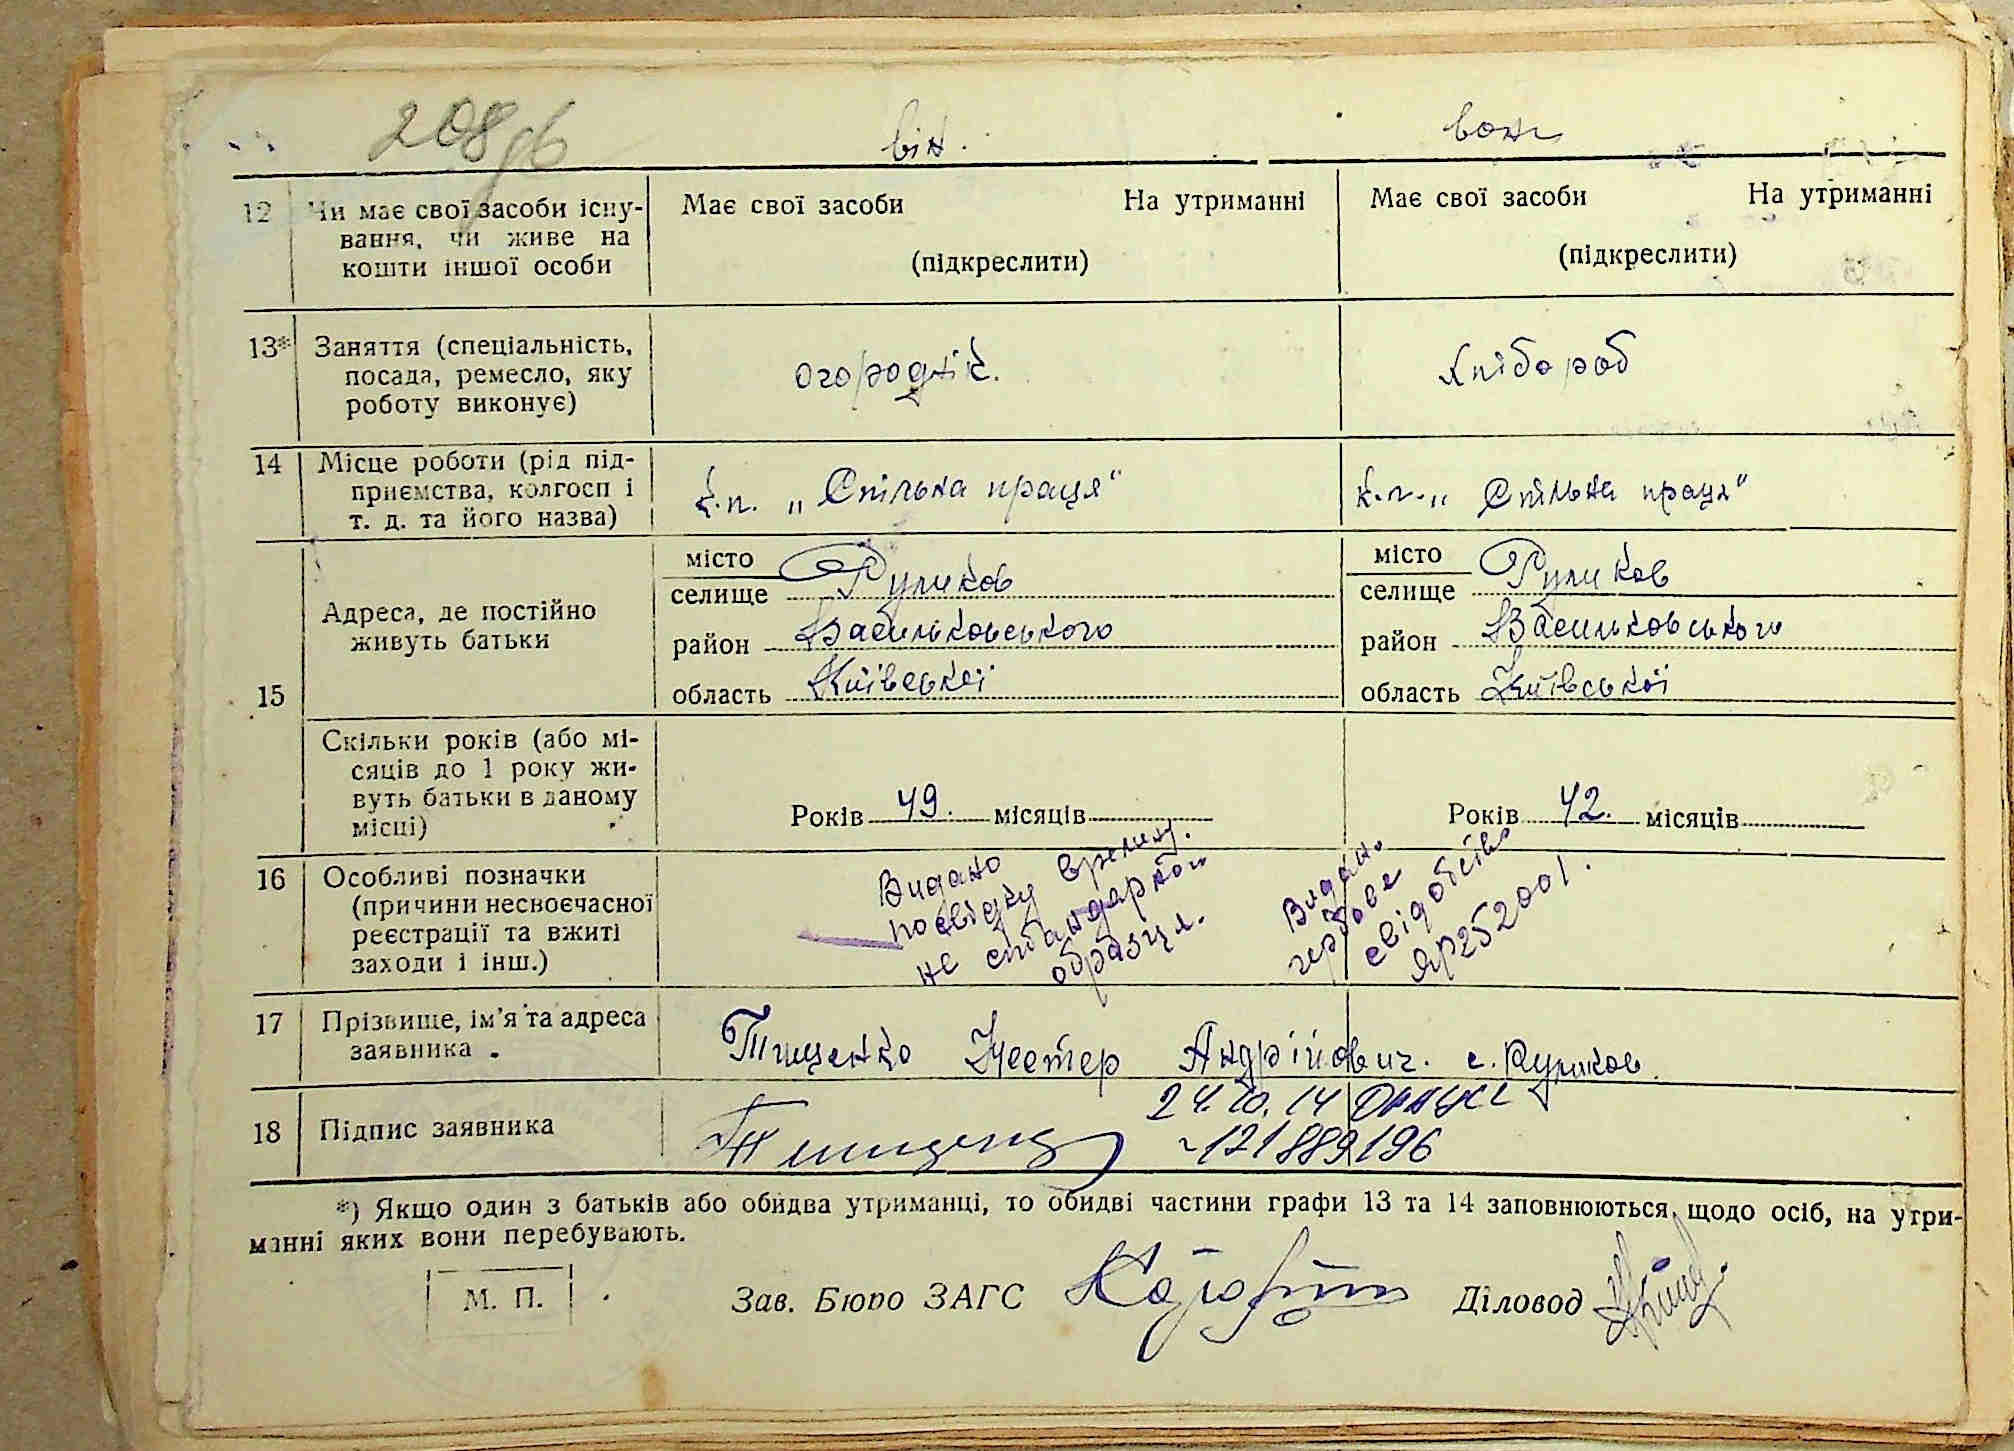 208 зв
він. вона
12 Чи має свої засоби існу- Має свої засоби На утриманні Має свої засоби На утриманні
вання, чи живе на
кошти іншої особи (підкреслити) (підкреслити)
13*) Заняття (спеціальність,
посада, ремесло, яку огороднік. хлібороб
роботу виконує)
14 Місце роботи (рід під-
приємства, колгосп і к.г. „Спільна праця" к.г. „Спільна праця"
т. д. та його назва)
місто місто
селище Руликов селище Руликов
Адреса, де постійно
живуть батьки район Васильковського район Васильковського
15 область Київської область Київської
Скільки років (або мі-
сяців до 1 року жи-
вуть батьки в даному Років 49. місяців Років 42. місяців
місці)
16 Особливі позначки
(причини несвоєчасної
реєстрації та вжиті
заходи і інш.)
Видано
посвідку времену.
не стандарной
образця.
Видано
гербове
свідотство
ЯР252001.
17 Прізвище, ім'я та адреса
заявника. Тищенко Нестер Андрійович. с. Руликов.
24.10.14
18 Підпис заявника 121889196
*) Якщо один з батьків або обидва утриманці, то обидві частини графи 13 та 14 заповнюються, щодо осіб, на утри-
манні яких вони перебувають.
М. П. Зав. Бюро ЗАГС Діловод